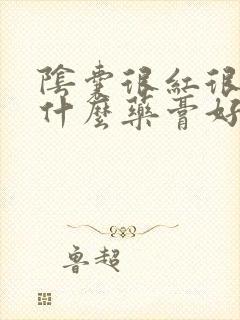 陰囊很紅很
什麼藥膏好
魯超